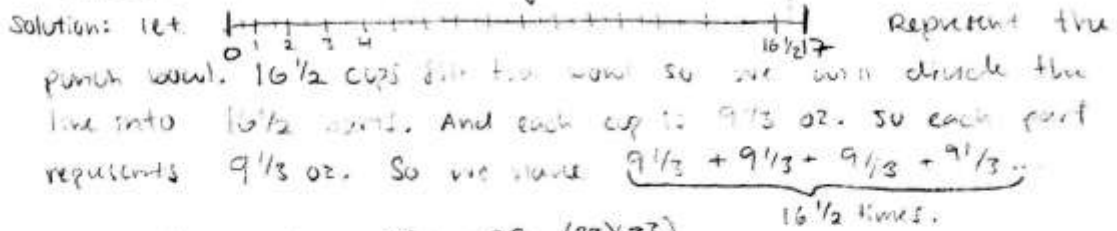 Solution: let 0 1 2 3 4 16 1/2 17 Represent the
punch bowl. 16 1/2 cups fill the bowl so we will divide the
line into 16 1/2 parts. And each cup is 9 1/3 oz. so each part
represents 9 1/3 oz. So we have 9 1/3 + 9 1/3 + 9 1/3 + 9 1/3 ..
16 1/2 times.